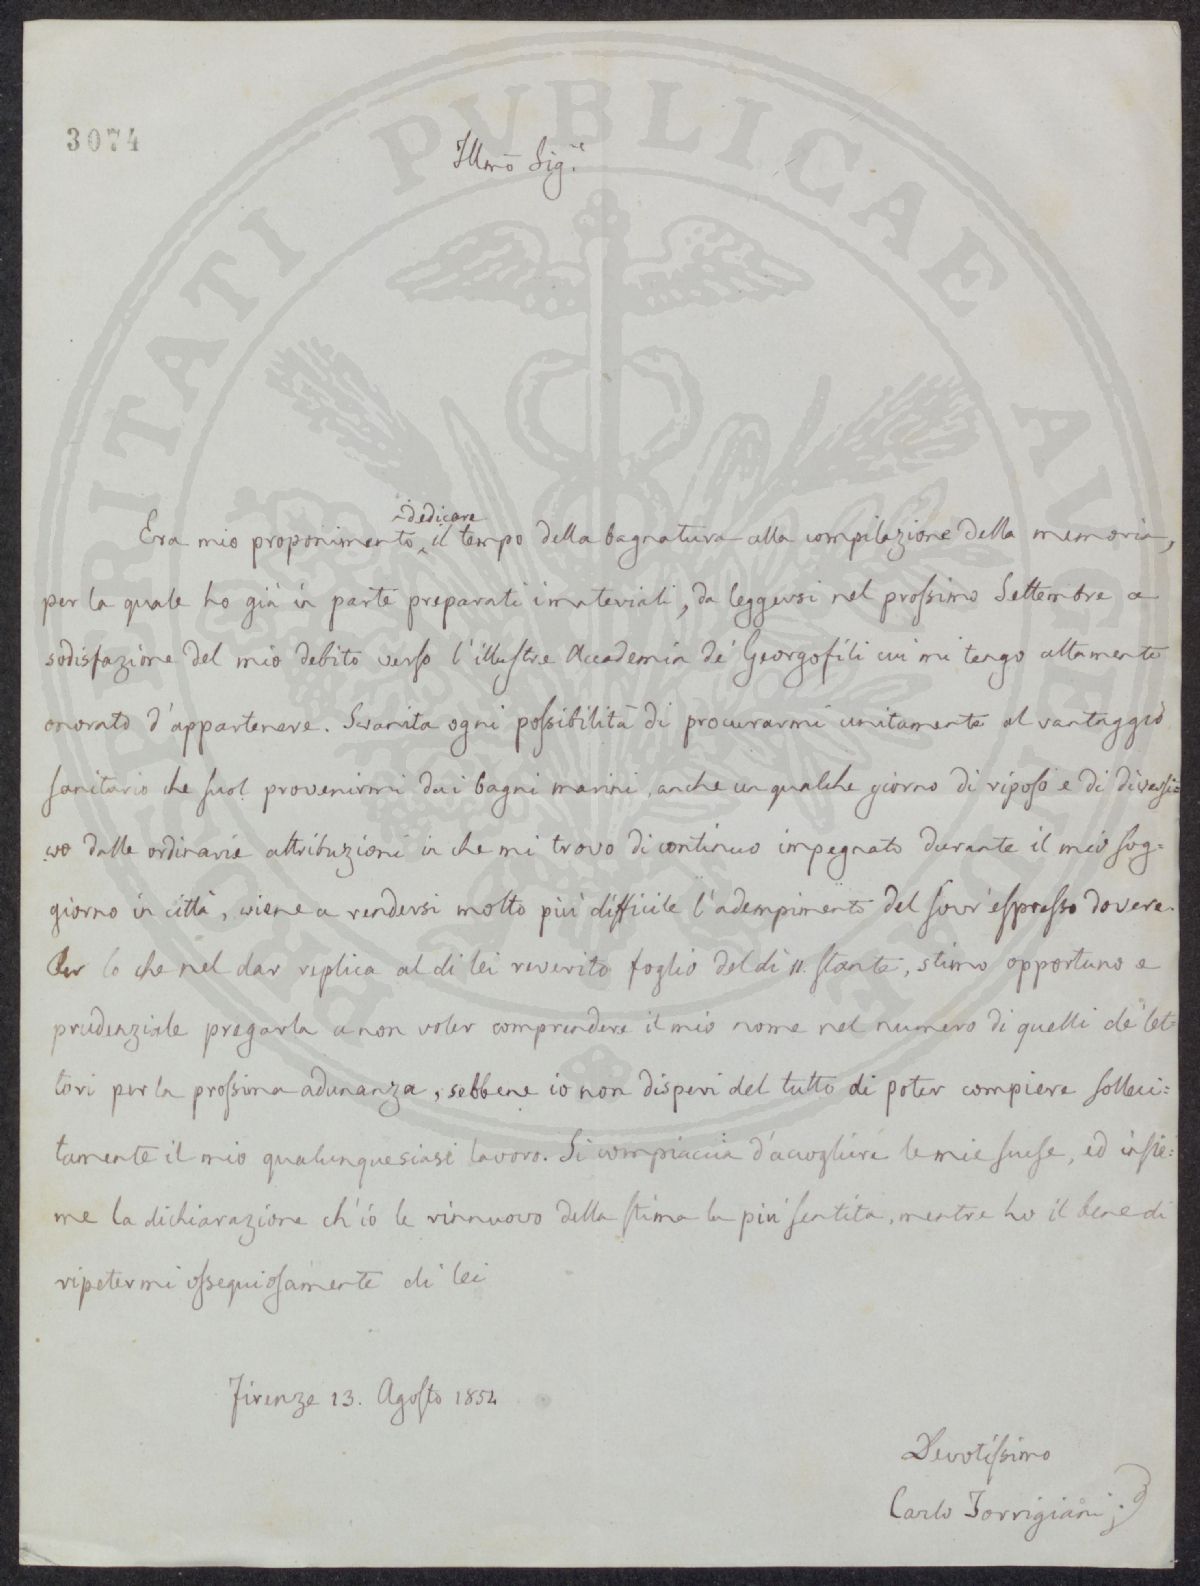 3074
Illmo Sigre
dedicare
Era mio proponimento il tempo della bagnatura alla compilazione della memoria,
per la quale ho già in parte preparati i materiali, da leggersi nel prossimo Settembre a
sodisfazione del mio debito verso l'illustre Accademia de' Georgofili cui mi tengo altamente
onorato d'appartenere. Svanita ogni possibilità di procurarmi unitamente al vantaggio
sanitario che suol provenirmi dai bagni marini, anche un qualche giorno di riposo e di diversi=
vo dalle ordinarie attribuzioni in che mi trovo di continuo impegnato durante il mio sog=
giorno in città, viene a rendersi molto più difficile l'adempimento del sovr'espresso dovere.
Per lo che nel dar replica al di lei reverito foglio del dì 11. stante, stimo opportuno e
prudenziale pregarla a non voler comprendere il mio nome nel numero di quelli de' let=
tori per la prossima adunanza, sebbene io non disperi del tutto di poter compiere solleci=
tamente il mio qualunquesiasi lavoro. Si compiaccia d'accogliere le mie scuse, ed insie=
me la dichiarazione ch'io le rinnuovo della stima la più sentita, mentre ho il bene di
ripetermi ossequiosamente di lei
Firenze 13. Agosto 1854
Devotissimo
Carlo Torrigiani
PROSPERITATI PVBLICAE AVGENDAE